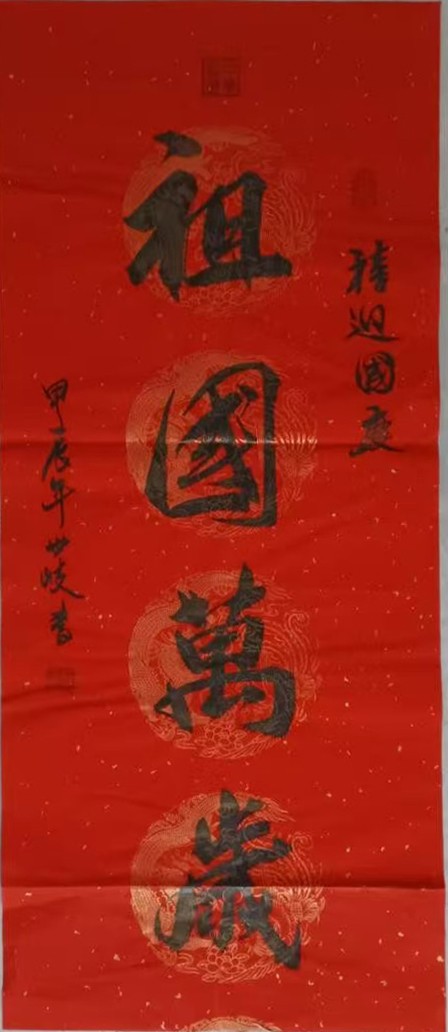 禧迎國慶
祖國萬歲
甲辰年世岐書